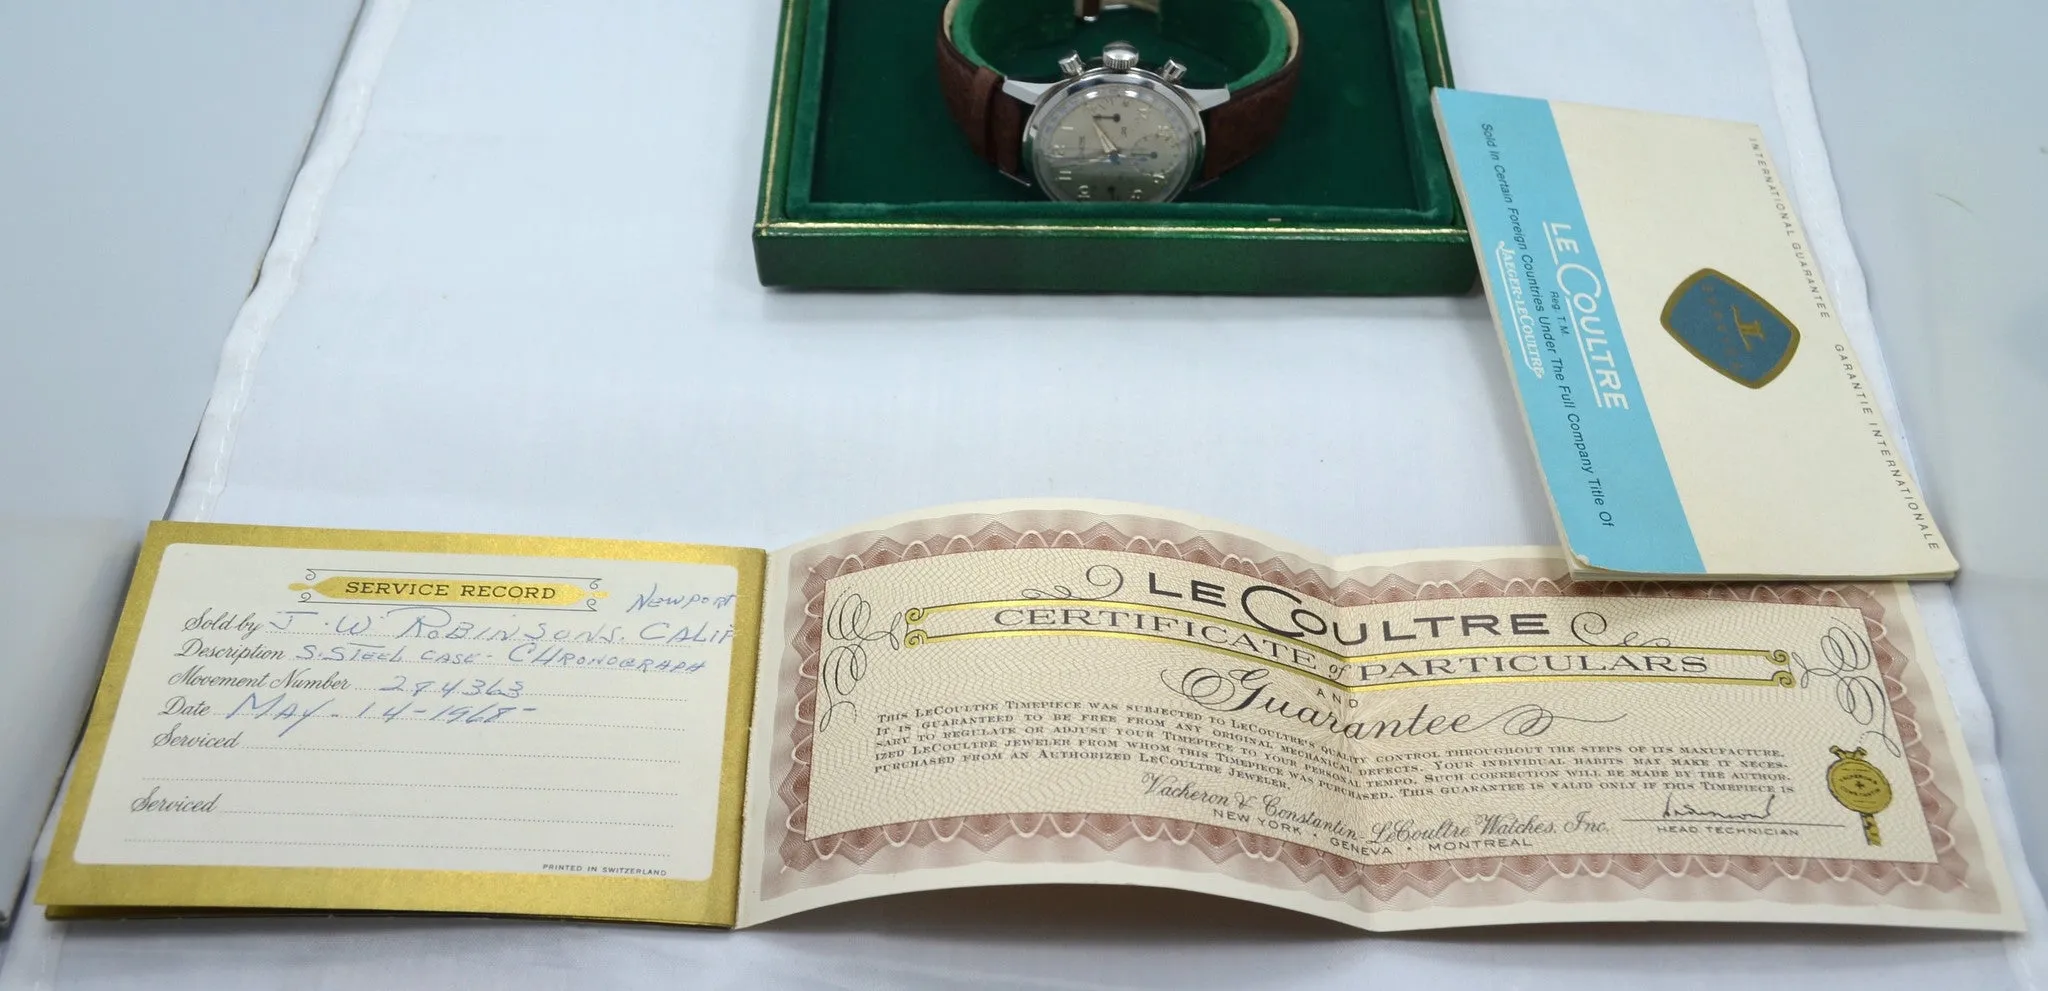 Sold In Certain Foreign Countries Under The Full Company Title Of
LE COULTRE
Reg. T.M.
JAEGER-LECOULTRE
INTERNATIONAL GUARANTEE GARANTIE INTERNATIONALE
SERVICE RECORD
NEWPORT
Sold by J. W ROBINSONS. CALIF
Description S. STEEL CASE - CHRONOGRAPH
Movement Number 294363
Date MAY. 14-1968-
Serviced
Serviced
PRINTED IN SWITZERLAND
LECOULTRE
CERTIFICATE of PARTICULARS
AND
Guarantee
THIS LECOULTRE TIMEPIECE WAS SUBJECTED TO LECOULTRE'S QUALITY CONTROL THROUGHOUT THE STEPS OF ITS MANUFACTURE.
IT IS GUARANTEED TO BE FREE FROM ANY ORIGINAL MECHANICAL DEFECTS. YOUR INDIVIDUAL HABITS MAY MAKE IT NECES-
SARY TO REGULATE OR ADJUST YOUR TIMEPIECE TO YOUR PERSONAL TEMPO. SUCH CORRECTION WILL BE MADE BY THE AUTHOR-
IZED LECOULTRE JEWELER FROM WHOM THIS TIMEPIECE WAS PURCHASED. THIS GUARANTEE IS VALID ONLY IF THIS TIMEPIECE IS
PURCHASED FROM AN AUTHORIZED LECOULTRE JEWELER.
Vacheron & Constantin-LeCoultre Watches, Inc.
NEW YORK • GENEVA • MONTREAL
HEAD TECHNICIAN